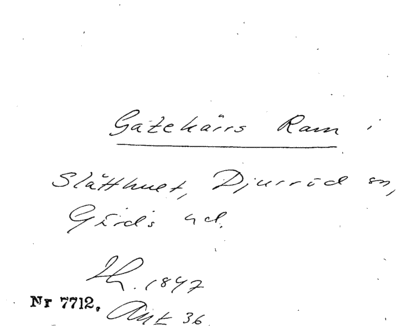 Gatekärrs Ram i
Slätthult, Djurröd sn,
Gärds hd.
Th. 1847
Nr 7712. Ant 36